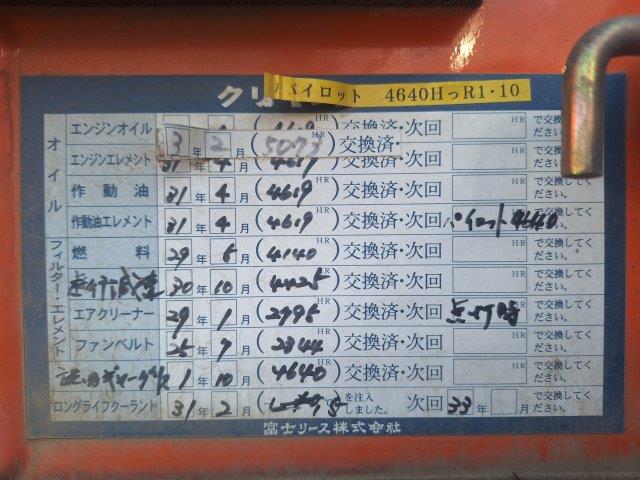 パイロット 4640HっR1・10
オイル
フィルター・エレメント
エンジンオイル (4619 HR)交換済・次回 HR で交換してください。
3年2月(5073)交換済・
エンジンエレメント 31年4月(4619 HR)交換済・次回 HR で交換してください。
作動油 31年4月(4619 HR)交換済・次回 HR で交換してください。
作動油エレメント 31年4月(4619 HR)交換済・次回 パイロット4640 で交換してください。
燃料 29年6月(4140 HR)交換済・次回 HR で交換してください。
30年10月(4425 HR)交換済・次回 HR で交換してください。
エアクリーナー 29年1月(2995 HR)交換済・次回 点灯時 で交換してください。
ファンベルト 25年7月(2344 HR)交換済・次回 HR で交換してください。
1年10月(4640 HR)交換済・次回 HR で交換してください。
ロングライフクーラント 31年2月( を注入しました。 次回 33年 月 で交換してください。
富士リース株式会社